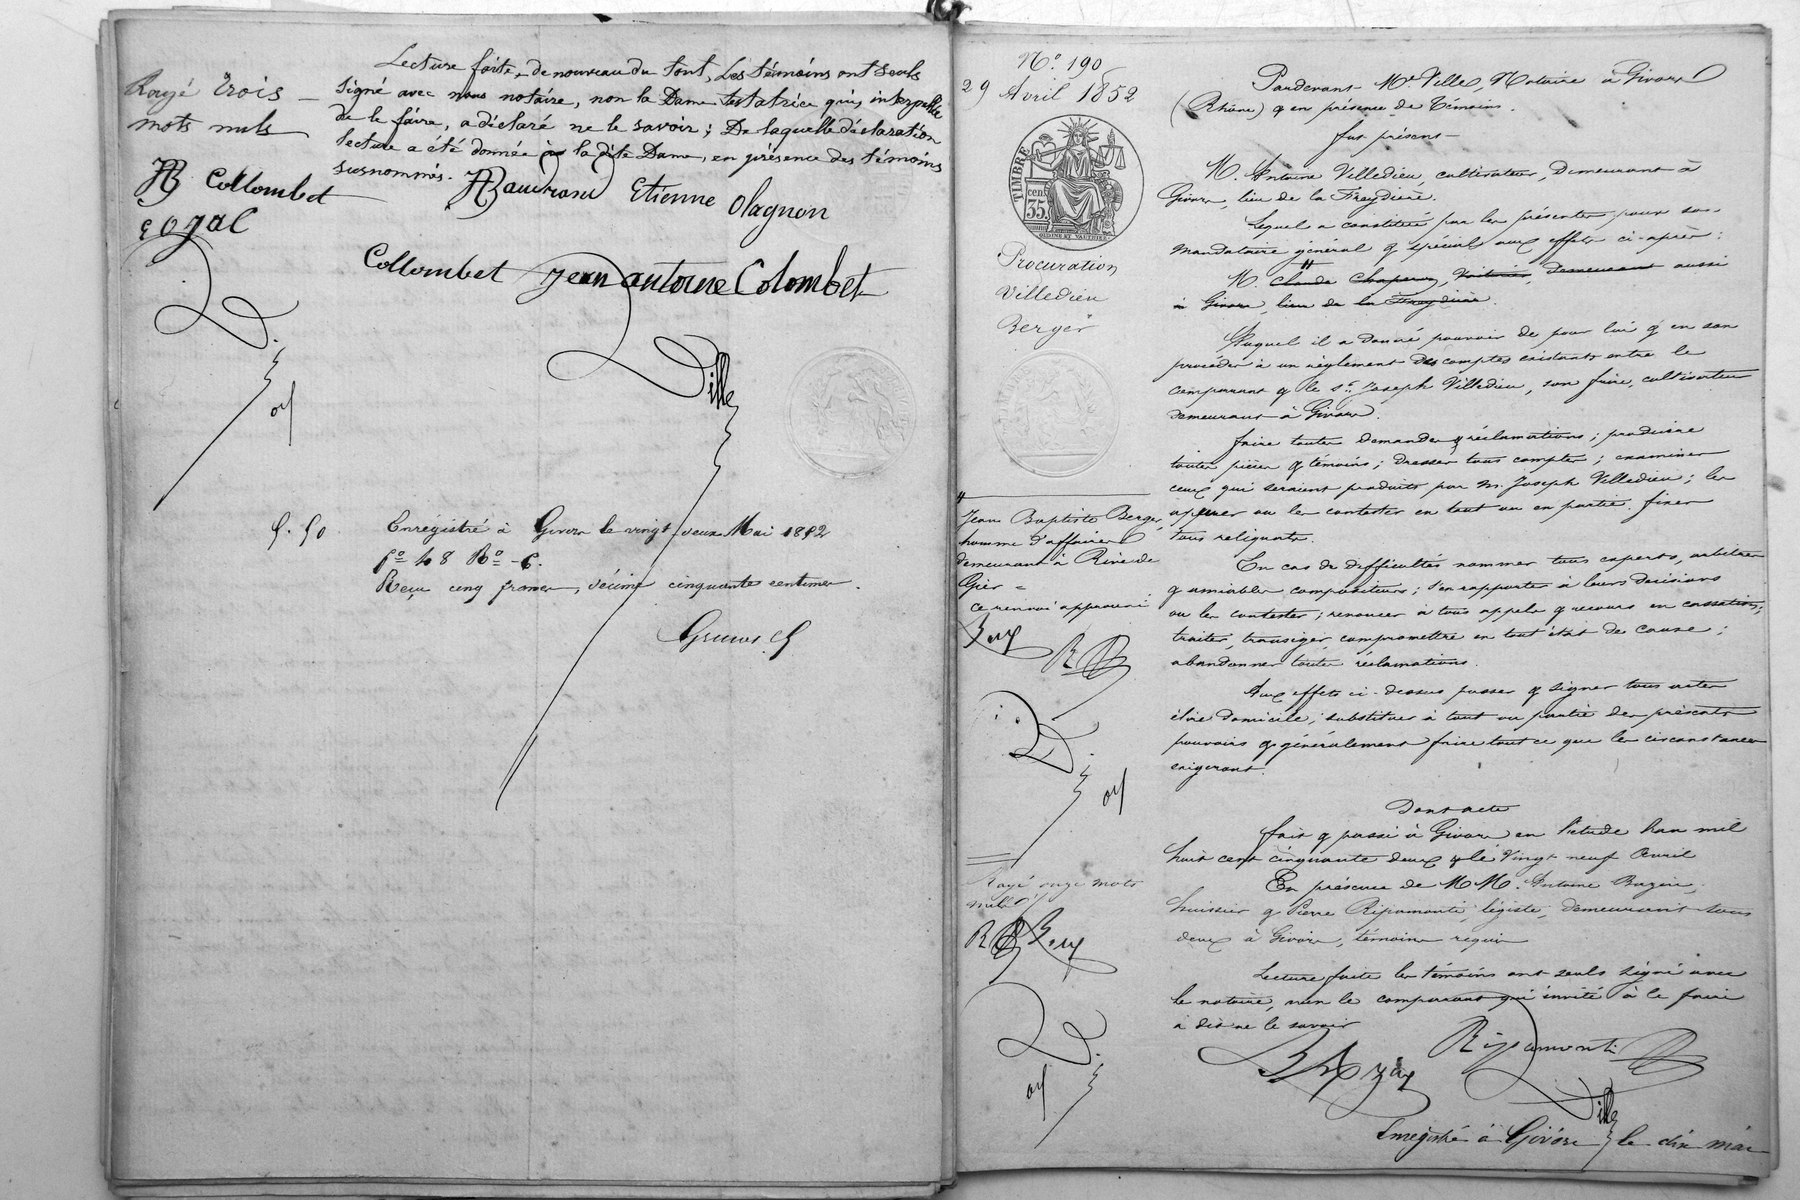 Lecture faite de nouveau du tout, Les témoins ont seuls
signé avec nous notaire, non la Dame testatrice qui, interpellée
de le faire, a déclaré ne le savoir; De laquelle déclaration
lecture a été donnée à la dite Dame, en présence des témoins
susnommés.
Rayé trois
mots nuls
Collombet
HBaudrand Etienne Olagnon
Collombet Jean antoine Colombet
Ville
5.50
Enregistré à Givors le vingt deux Mai 1852
fo 48 Ro C 6.
Reçu cinq francs, décime cinquante centimes.
No 190
29 Avril 1852
TIMBRE
35 cen
Procuration
Villedieu
Berger
Pardevant Me Ville, Notaire à Givors
(Rhône) & en présence de Témoins.
fut présent
M. Antoine Villedieu, cultivateur, Demeurant à
Givors, lieu de la Freydière.
Lequel a constitué par les présentes pour son
mandataire général & spécial aux effets ci-après:
M. Claude Chaperon, voiturier, demeurant aussi
à Givors, lieu de la Freydière.
Auquel il a donné pouvoir de pour lui & en son
procéder à un règlement des comptes existants entre le
comparant & le sr. Joseph Villedieu, son frère, cultivateur
demeurant à Givors.
faire toutes demandes & réclamations; produire
toutes pièces & témoins; dresser tous comptes; examiner
ceux qui seraient produits par M. Joseph Villedieu; les
apurer ou les contester en tout ou en partie. fixer
tous reliquats.
En cas de difficultés nommer tous experts, arbitres
& amiables compositeurs; s'en rapporter à leurs décisions
ou les contester; renoncer à tous appels & recours en cassation;
traiter, transiger, compromettre en tout état de cause;
abandonner toutes réclamations.
Aux effets ci-dessus passer & signer tous actes
élire domicile; substituer à tout ou partie des présents
pouvoirs & généralement faire tout ce que les circonstances
exigeront.
Jean Baptiste Berger,
homme d'affaires
demeurant à Rive de
Gier
ce renvoi approuvé
Dont acte
fait & passé à Givors en l'étude l'an mil
huit cent cinquante deux & le Vingt neuf Avril
En présence de MM. Antoine
huissier & Pierre Ripamonti, légiste, demeurant tous
deux à Givors, témoins requis
Lecture faite les témoins ont seuls signé avec
le notaire, non le comparant qui invité à le faire
a dit ne le savoir
Rayé onze mots
nuls
Ripamonti
Ville
Enregistré à Givors le dix mai